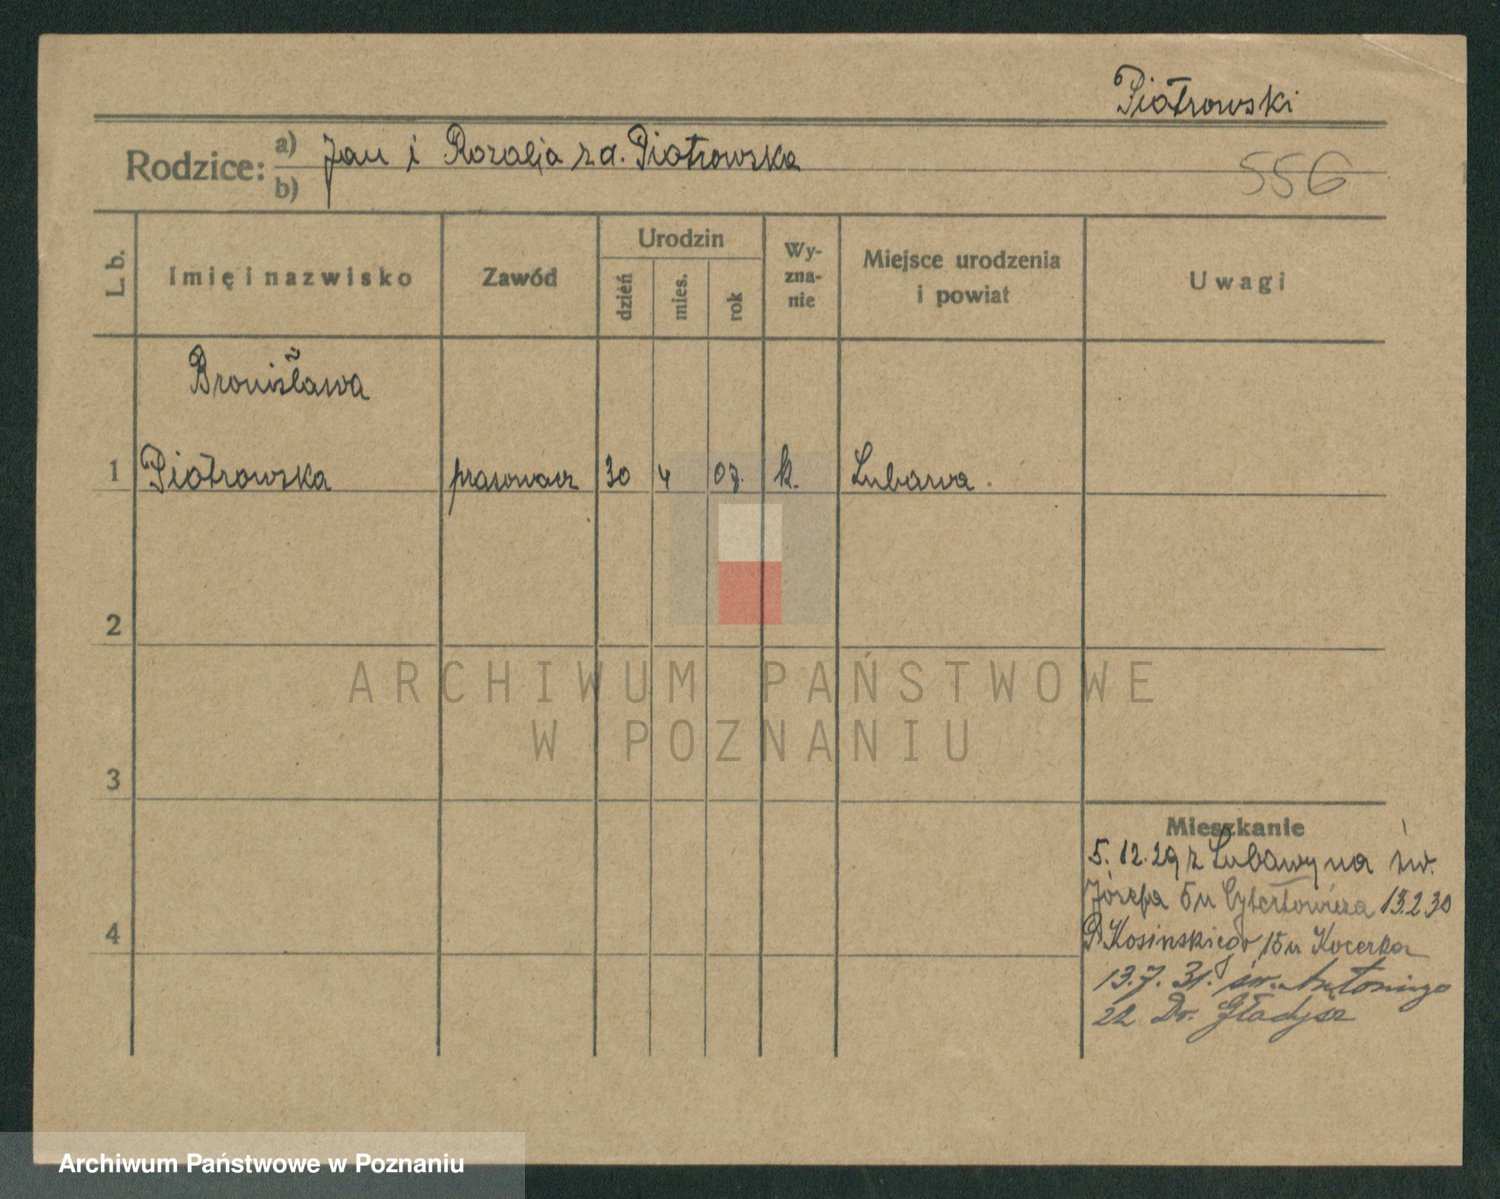 Piotrowski
Rodzice: a) Jan i Rozalja zd. Piotrowska
b)
556
L. b.
Imię i nazwisko
Zawód
Urodzin
dzień
mies.
rok
Wy-
zna-
nie
Miejsce urodzenia
i powiat
Uwagi
Bronisława
1 Piotrowska 30 4 07. k. Lubawa.
2
3
4
ARCHIWUM PAŃSTWOWE
W POZNANIU
Mieszkanie
5.12.29 z Lubawy na św.
Józefa 5 u 13.2.30
Kosińskiego 15 u Kocerka
13.7.31. św. Antoniego
22 Dr. Gładysz
Archiwum Państwowe w Poznaniu